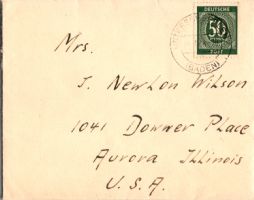 DEUTSCHE
50
POST
(BADEN)
Mrs.
J. Newton Wilson
1041 Downer Place
Aurora Illinois
U.S.A.